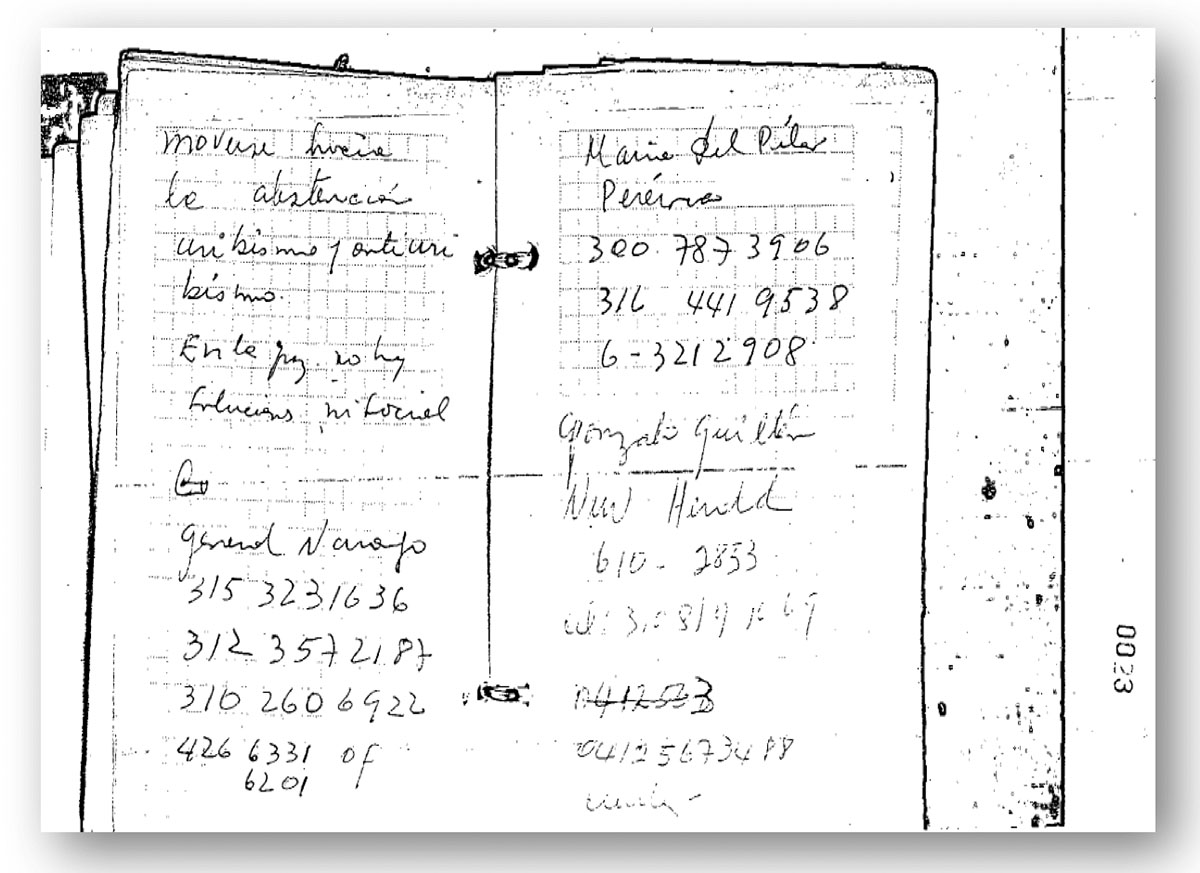 moverse hacia
la abstención
uribismo y antiuri
bismo.
En la paz no hay
soluciones, ni social
General Naranjo
315 3231636
312 3572187
310 260 6922
426 6331 of
6201
Maria del Pilar
300 787 3906
316 441 9538
6-3212908
Gonzalo Guillén
New Herald
610 - 2853
cel:
04125673488
0023